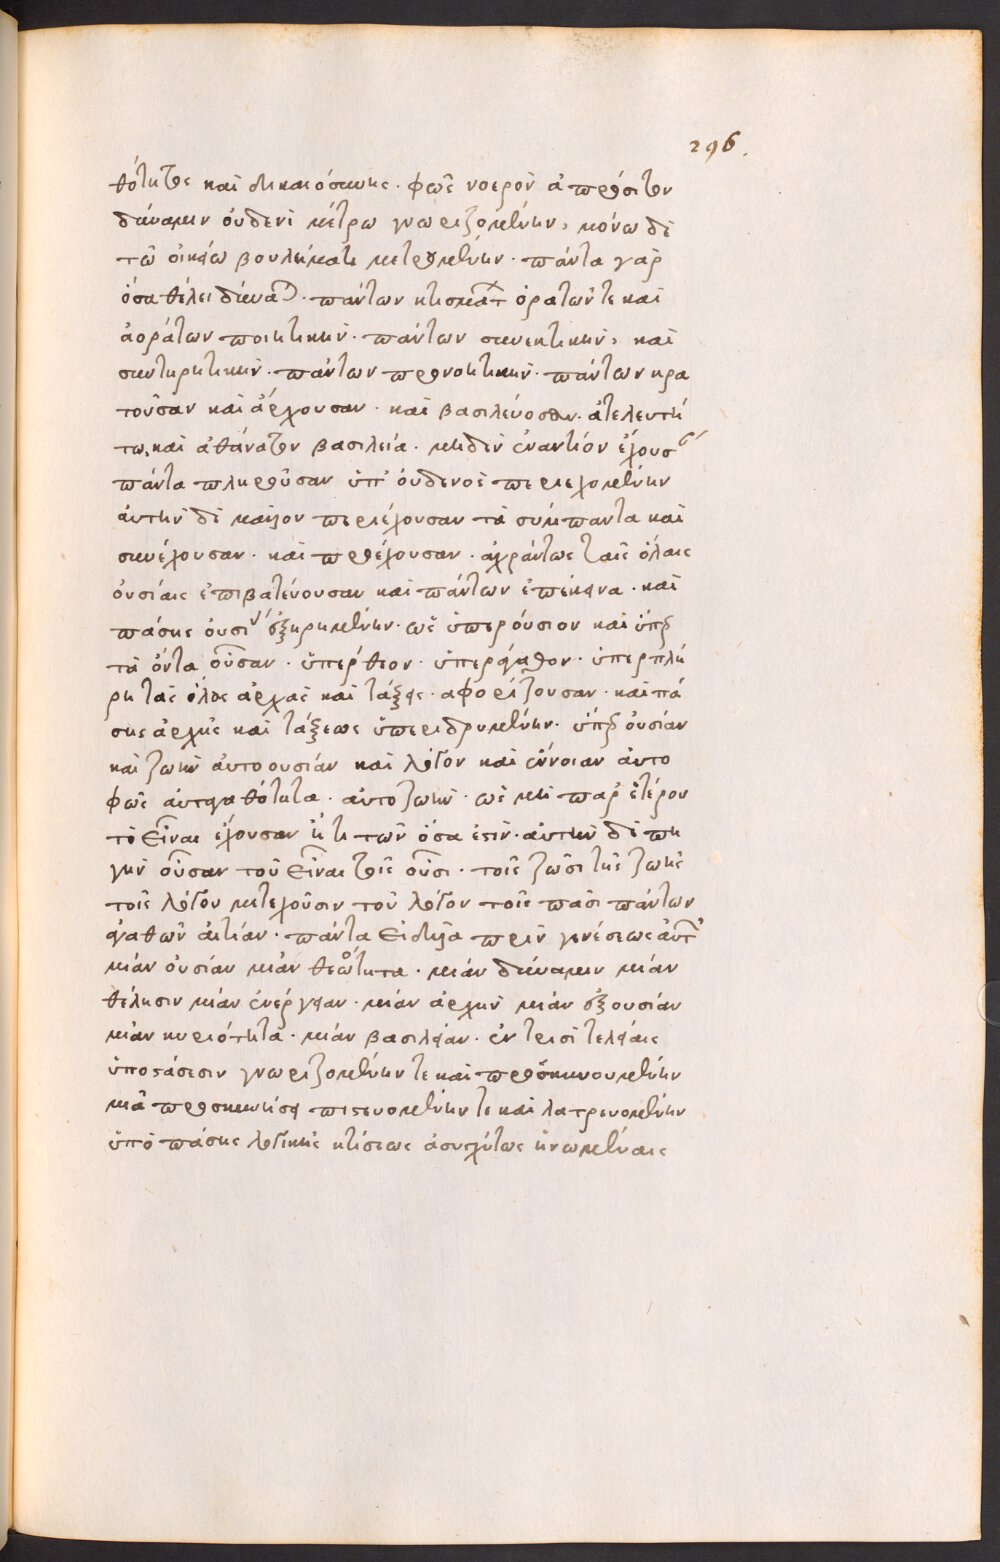 296.
θότητος καὶ δικαιοσύνης· φῶς νοερὸν ἀπρόσιτον
δύναμιν οὐδενὶ μέτρω γνωριζομένην, μόνω δὲ
τῶ οἰκείω βουλήματι μετρουμένην· πάντα γὰρ
ὅσα θέλει δύναται· πάντων κτισμάτων ὁρατῶν τε καὶ
ἀοράτων ποιητικήν· πάντων συνεκτικήν, καὶ
συντηρητικήν· πάντων προνοητικήν· πάντων κρα
τοῦσαν καὶ ἄρχουσαν· καὶ βασιλεύουσαν· ἀτελευτή
τω, καὶ ἀθάνατον βασιλεία· μηδὲν ἐναντίον ἔχουσαν
πάντα πληροῦσαν ὑπ' οὐδενὸς περιεχομένην
αὐτὴν δὲ μᾶλλον περιέχουσαν τὰ σύμπαντα καὶ
συνέχουσαν· καὶ προέχουσαν· ἀχράντως ταῖς ὅλαις
οὐσίαις ἐπιβατεύουσαν καὶ πάντων ἐπέκεινα· καὶ
πάσης οὐσίας ἐξηρημένην· ὡς ὑπερούσιον καὶ ὑπὲρ
τὰ ὄντα οὖσαν· ὑπέρθεον· ὑπεράγαθον· ὑπερπλή
ρη τὰς ὅλας ἀρχὰς καὶ τάξεις· ἀφορίζουσαν· καὶ πά
σης ἀρχῆς καὶ τάξεως ὑπεριδρυμένην· ὑπὲρ οὐσίαν
καὶ ζωὴν αὐτοουσίαν καὶ λόγον καὶ ἔννοιαν αὐτο
φῶς αὐτοαγαθότητα· αὐτοζωήν· ὡς μὴ παρ' ἑτέρου
τὸ εἶναι ἔχουσαν ἤ τι τῶν ὅσα ἐστίν· αὐτὴν δὲ πη
γὴν οὖσαν τοῦ εἶναι τοῖς οὖσι· τοῖς ζῶσι τῆς ζωῆς
τοῖς λόγου μετέχουσιν τοῦ λόγου τοῖς πᾶσι πάντων
ἀγαθῶν αἰτίαν· πάντα εἰδυῖα πρὶν γενέσεως αὐτῶν
μίαν οὐσίαν μίαν θεότητα· μίαν δύναμιν μίαν
θέλησιν μίαν ἐνέργειαν· μίαν ἀρχὴν μίαν ἐξουσίαν
μίαν κυριότητα· μίαν βασιλείαν· ἐν τρισὶ τελείαις
ὑποστάσεσιν γνωριζομένην τε καὶ προσκυνουμένην
μιᾶ προσκυνήσει πιστευομένην τε καὶ λατρευομένην
ὑπὸ πάσης λογικῆς κτίσεως ἀσυγχύτως ἡνωμέναις